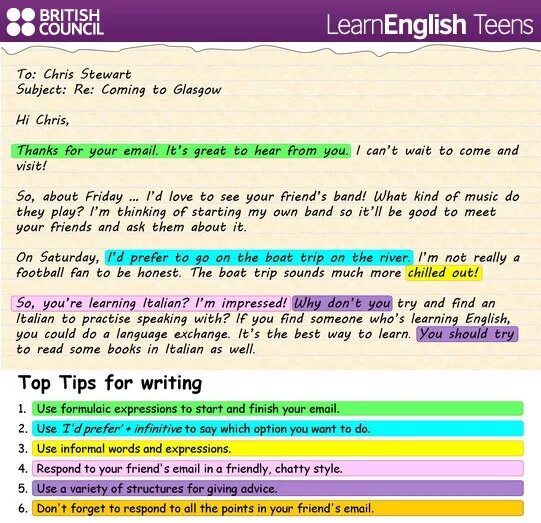 BRITISH
COUNCIL
LearnEnglish Teens
To: Chris Stewart
Subject: Re: Coming to Glasgow
Hi Chris,
Thanks for your email. It's great to hear from you. I can't wait to come and
visit!
So, about Friday ... I'd love to see your friend's band! What kind of music do
they play? I'm thinking of starting my own band so it'll be good to meet
your friends and ask them about it.
On Saturday, I'd prefer to go on the boat trip on the river. I'm not really a
football fan to be honest. The boat trip sounds much more chilled out!
So, you're learning Italian? I'm impressed! Why don't you try and find an
Italian to practise speaking with? If you find someone who's learning English,
you could do a language exchange. It's the best way to learn. You should try
to read some books in Italian as well.
Top Tips for writing
1. Use formulaic expressions to start and finish your email.
2. Use 'I'd prefer' + infinitive to say which option you want to do.
3. Use informal words and expressions.
4. Respond to your friend's email in a friendly, chatty style.
5. Use a variety of structures for giving advice.
6. Don't forget to respond to all the points in your friend's email.